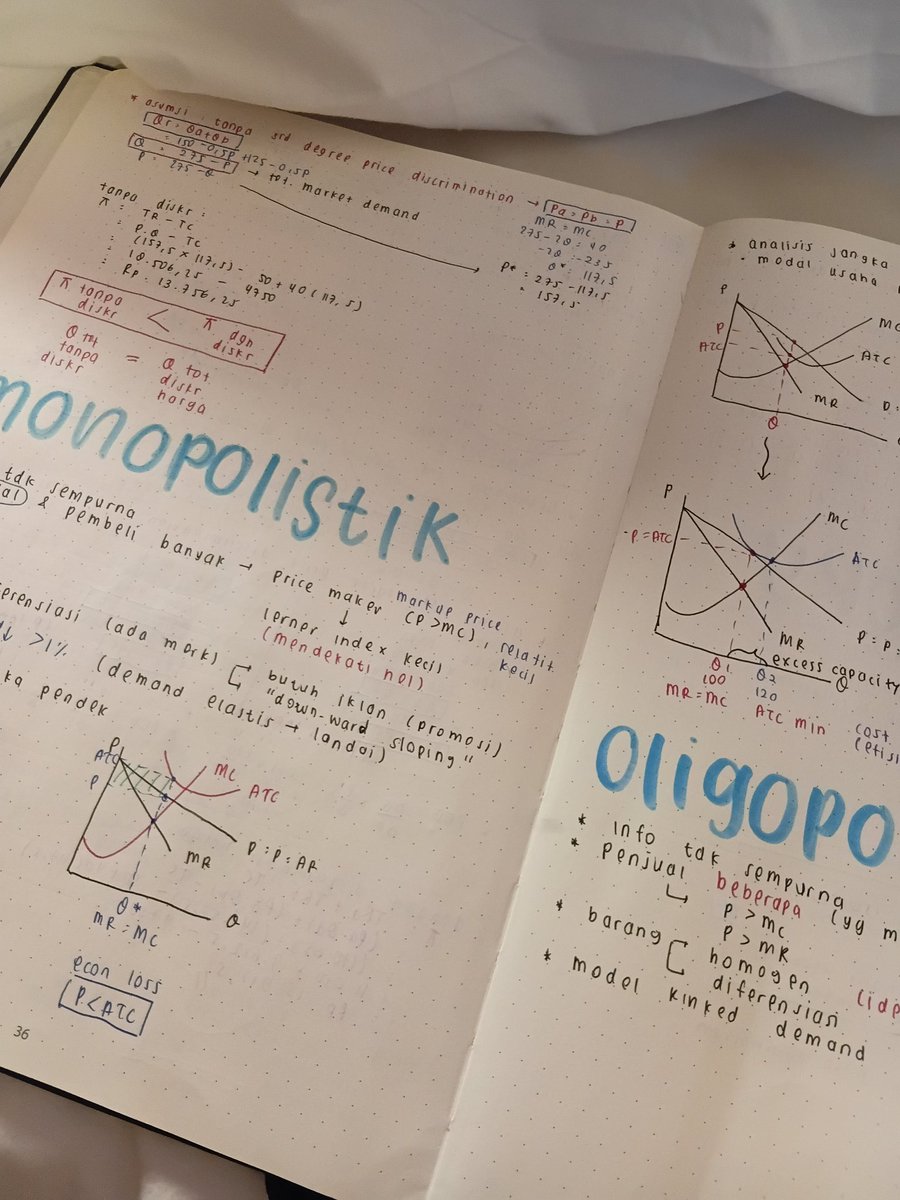 * asumsi : tanpa 3rd degree price discrimination → Pa = Pb = P
Qt = Qa + Qb
= 150 - 0,5P + 125 - 0,5P
Q = 275 - P → tot. market demand
P = 275 - Q
MR = MC
275 - 2Q = 40
-2Q = -235
Q* = 117,5
P* = 275 - 117,5
= 157,5
tanpa diskr :
π = TR - TC
= P.Q - TC
= (157,5 x 117,5) - 50 + 40 (117,5)
= 18.506,25 - 4750
= Rp. 13.756,25
π tanpa diskr < π dgn diskr
Q tot tanpa diskr = Q tot. diskr harga
monopolistik
tdk sempurna
& pembeli banyak → price maker (P > MC), relatif kecil
markup price
↓
lerner index kecil
(mendekati nol)
(ada merk)
butuh iklan (promosi)
"down-ward sloping"
↓ >1% (demand elastis → landai)
pendek
P
ATC
P
MC
ATC
D = P = AR
MR
Q* Q
MR = MC
econ loss
P < ATC
36
* analisis jangka
- modal usaha
P
P
ATC
MC
ATC
MR
D =
Q
P
P = ATC
MC
ATC
MR
excess capacity
Q1 Q2 Q
100 120
MR = MC ATC min cost
Oligopo
* info tdk sempurna
* penjual beberapa (yg m
↳ P > MC
P > MR
* barang
homogen
diferensiasi
* model kinked demand